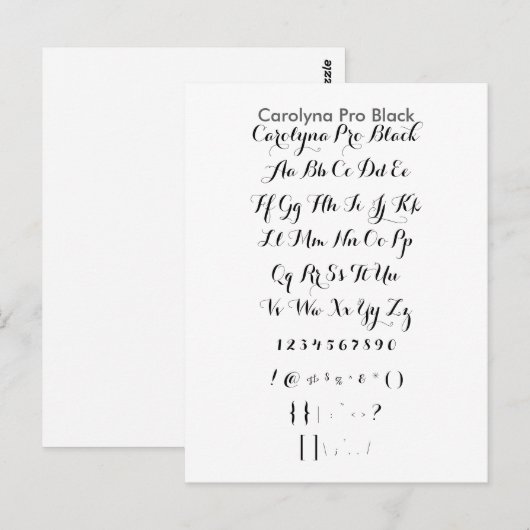 Carolyna Pro Black
Carolyna Pro Black
Aa Bb Cc Dd Ee
Ff Gg Hh Ii Jj Kk
Ll Mm Nn Oo Pp
Qq Rr Ss Tt Uu
Vv Ww Xx Yy Zz
1 2 3 4 5 6 7 8 9 0
! @ # $ % ^ & * ( )
{ } | : " < > ?
[ ] \ ; ' , . /